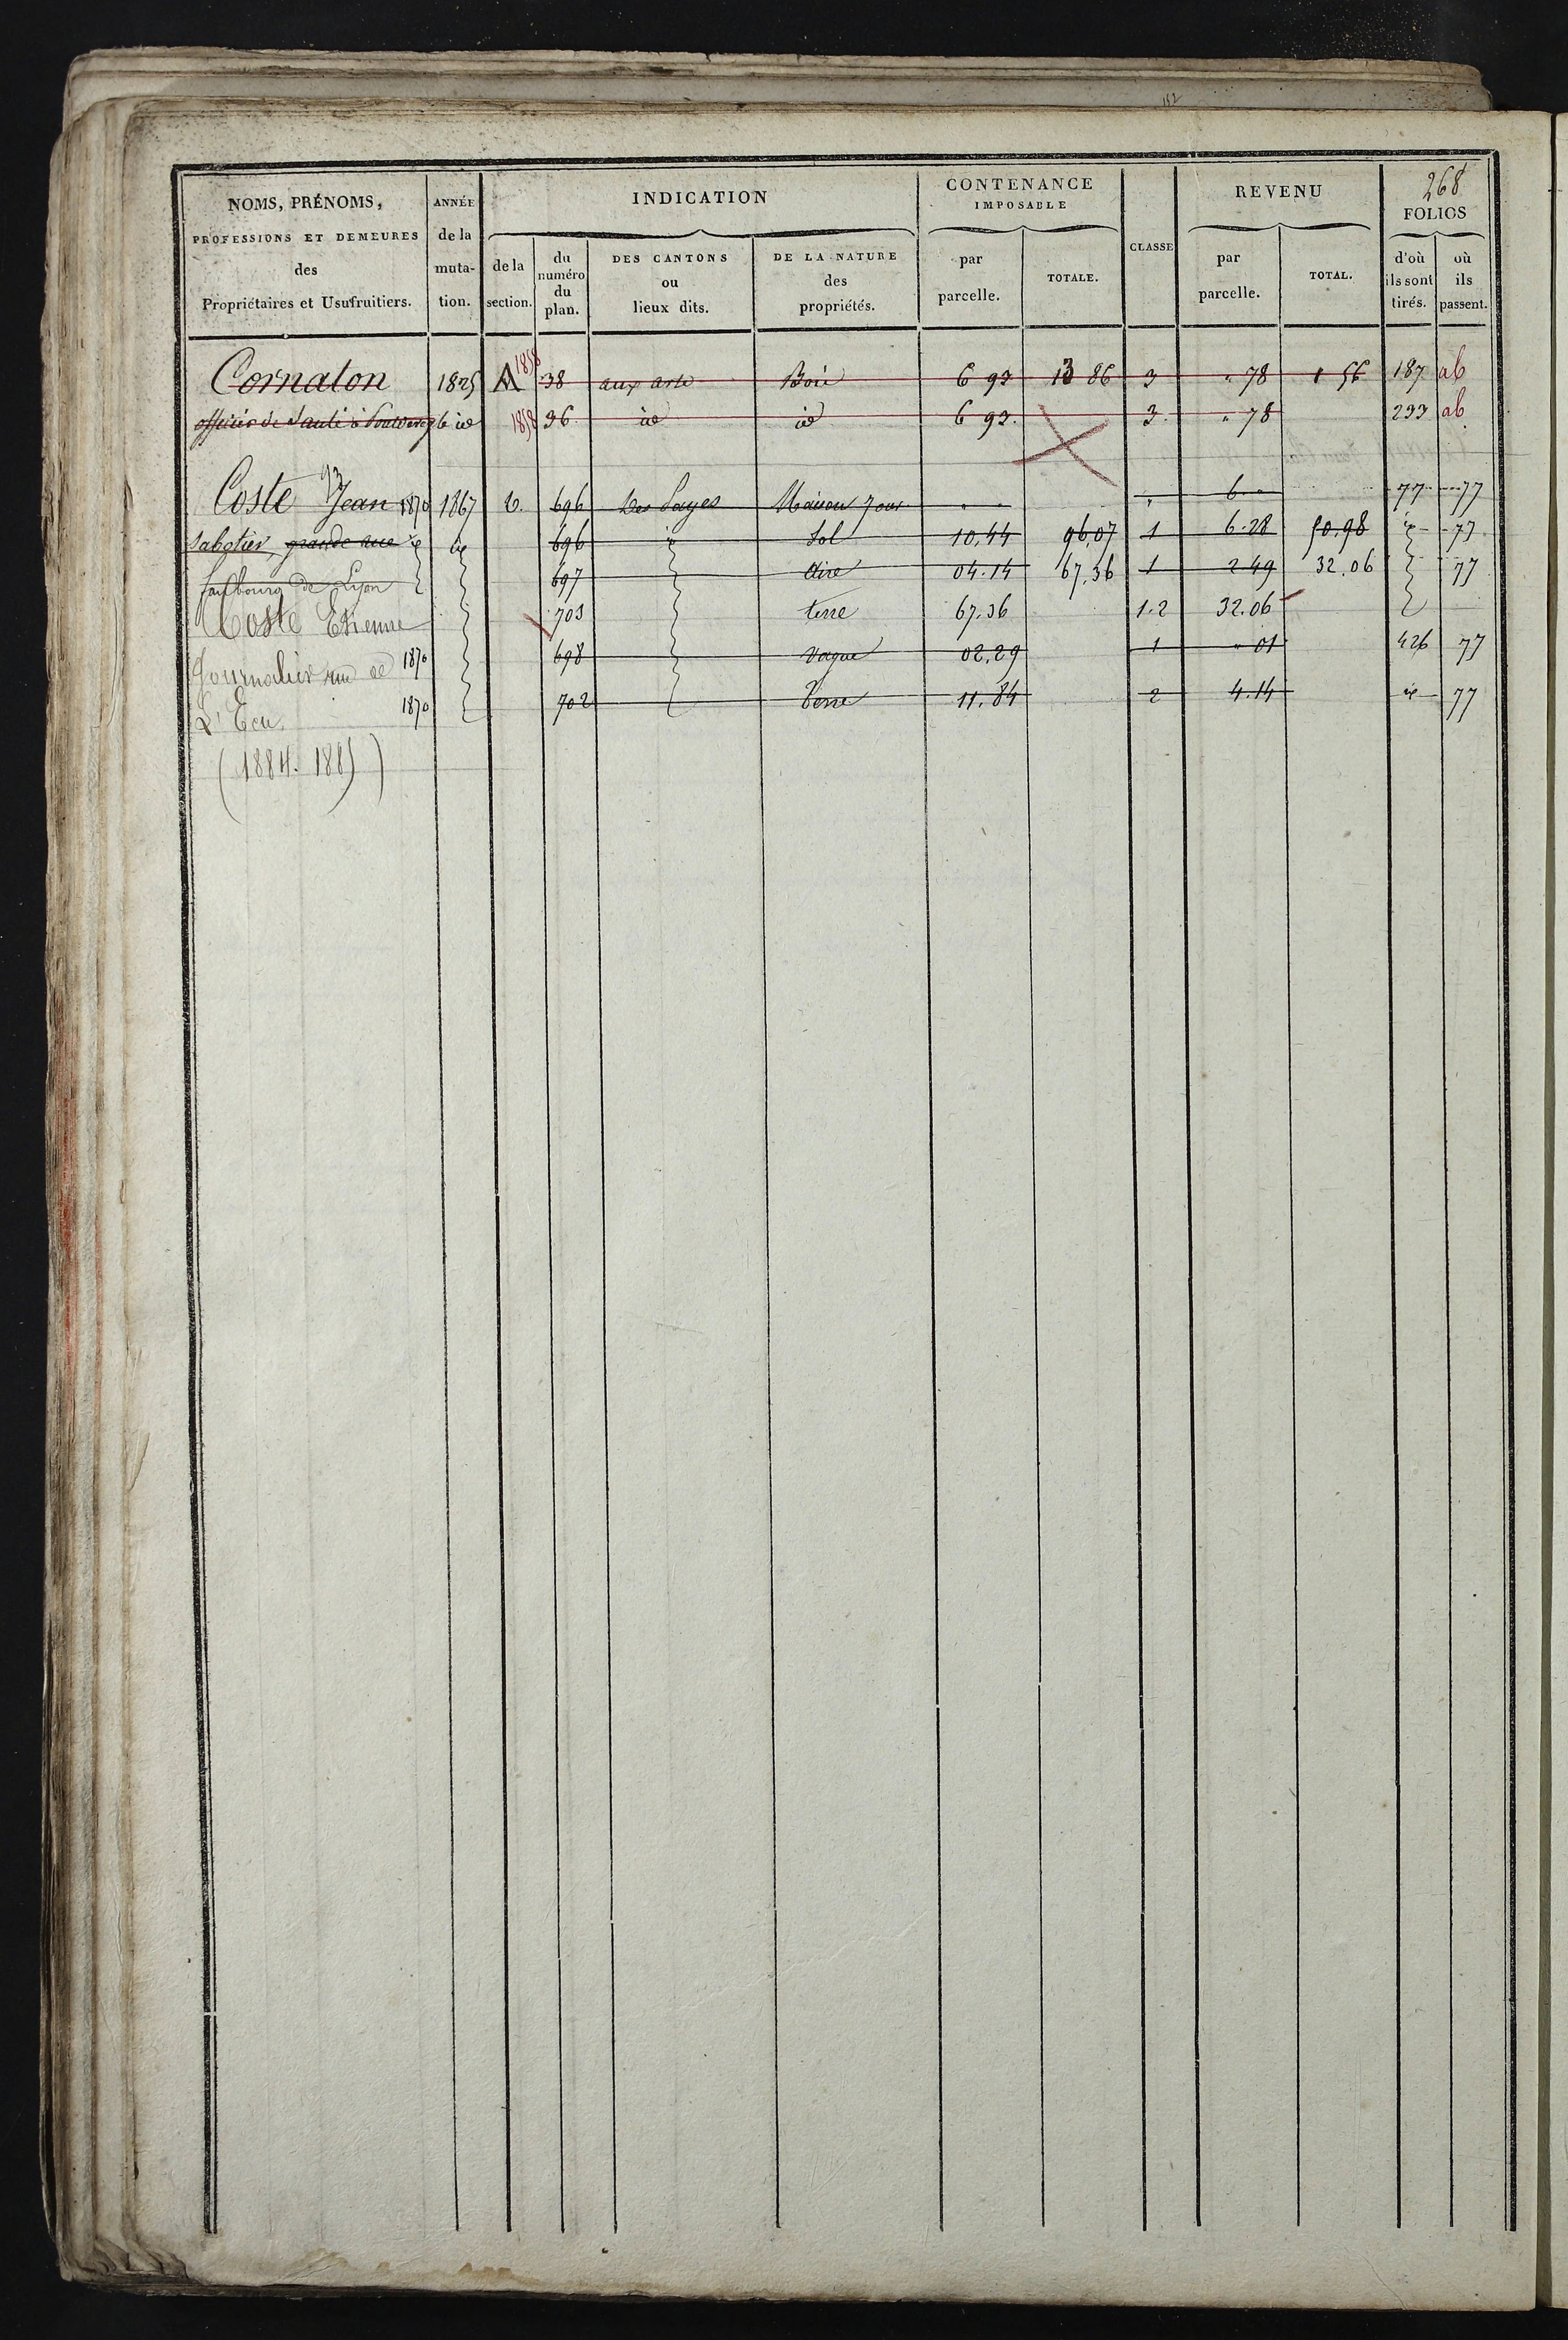 152
268
NOMS, PRÉNOMS, PROFESSIONS ET DEMEURES des Propriétaires et Usufruitiers.
ANNÉE de la muta- tion.
INDICATION
de la section.
du numéro du plan.
DES CANTONS ou lieux dits.
DE LA NATURE des propriétés.
CONTENANCE IMPOSABLE
par parcelle.
TOTALE.
CLASSE
REVENU
par parcelle.
TOTAL.
FOLIOS
d'où ils sont tirés.
où ils passent.
Cornaton 1825 A 1858 38 aux Bois 6 93 13 86 3 " 78 1 56 187 ab
officier de Santé à id 1858 36 id id 6 93 3 " 78 233 ab
93
Coste Jean 1870 1867 696 Des Maison 6 " 77 77
Sabotier grande rue id id 696 id Sol 10.44 96.07 1 6.28 50.98 id 77
faubourg de Lyon 697 aire 04.14 67.36 1 2.49 32.06 77
Coste Etienne 703 terre 67.36 1.2 32.06
Journalier rue de 1870 698 Vague 02.29 1 " 01 426 77
L'Ecu 1870 702 Terre 11.84 2 4.14 id 77
(1884. 1885)